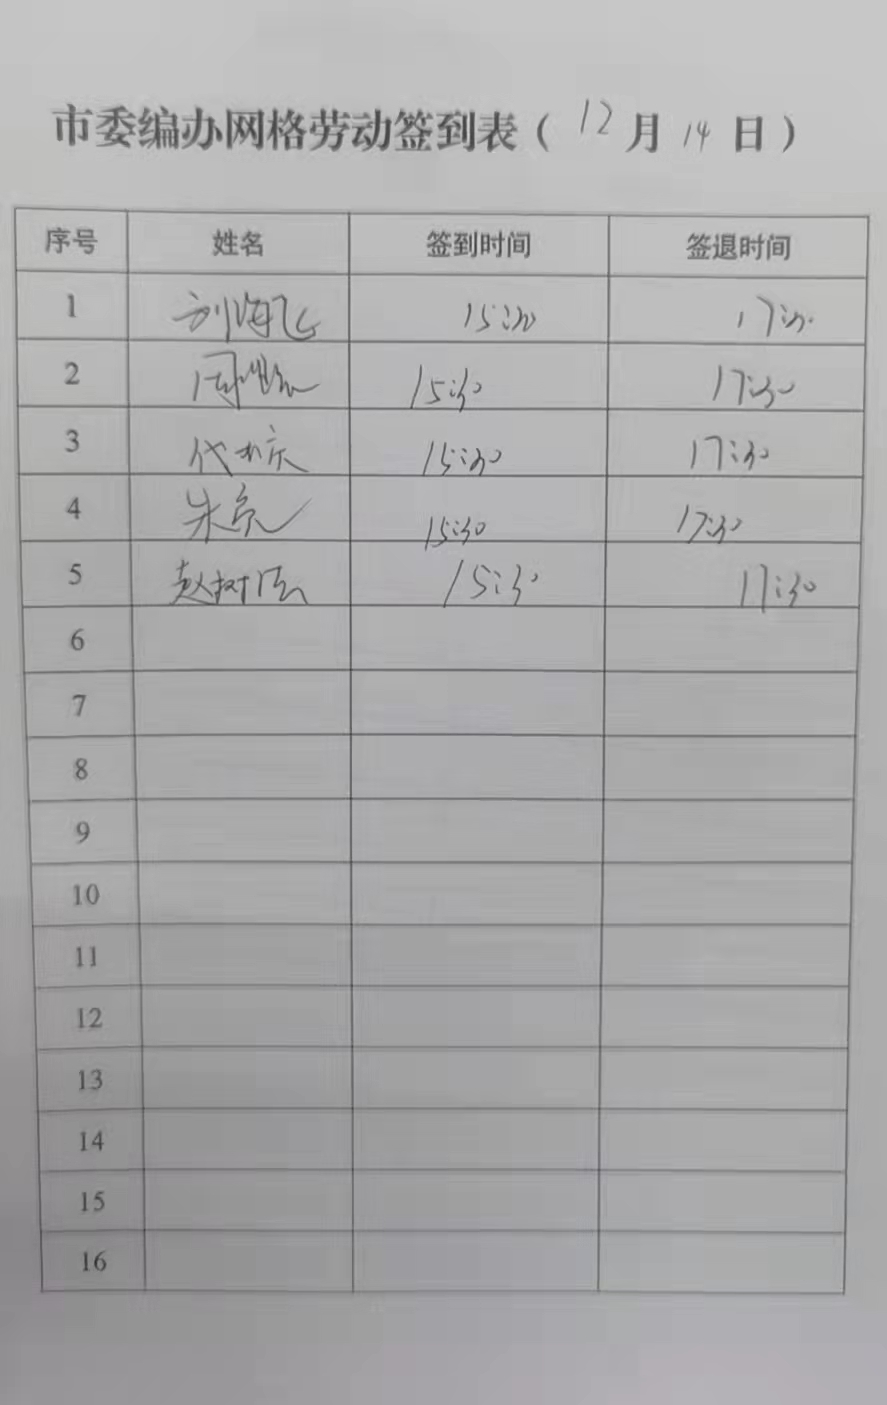 市委编办网格劳动签到表（12月14日）
序号 姓名 签到时间 签退时间
1 刘海飞 15:30 17:30
2 周 15:30 17:30
3 代 庆 15:30 17:30
4 朱亮 15:30 17:30
5 赵树 15:30 17:30
6
7
8
9
10
11
12
13
14
15
16